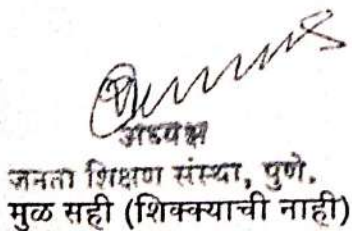 अध्यक्ष
जनता शिक्षण संस्था, पुणे.
मुळ सही (शिक्क्याची नाही)